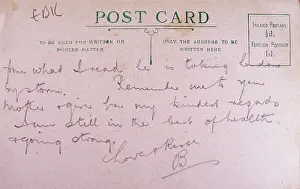 £DK
POST CARD
TO BE USED FOR WRITTEN OR
PRINTED MATTER
TO BE USED FOR ADDRESS
WRITTEN HERE
INLAND POSTAGE
½d.
FOREIGN POSTAGE
1d.
from what I read he is taking London
by storm. Remember me to your
mother & give her my kindest regards
I am still in the best of health
& going strong.
Love & Kisses
B